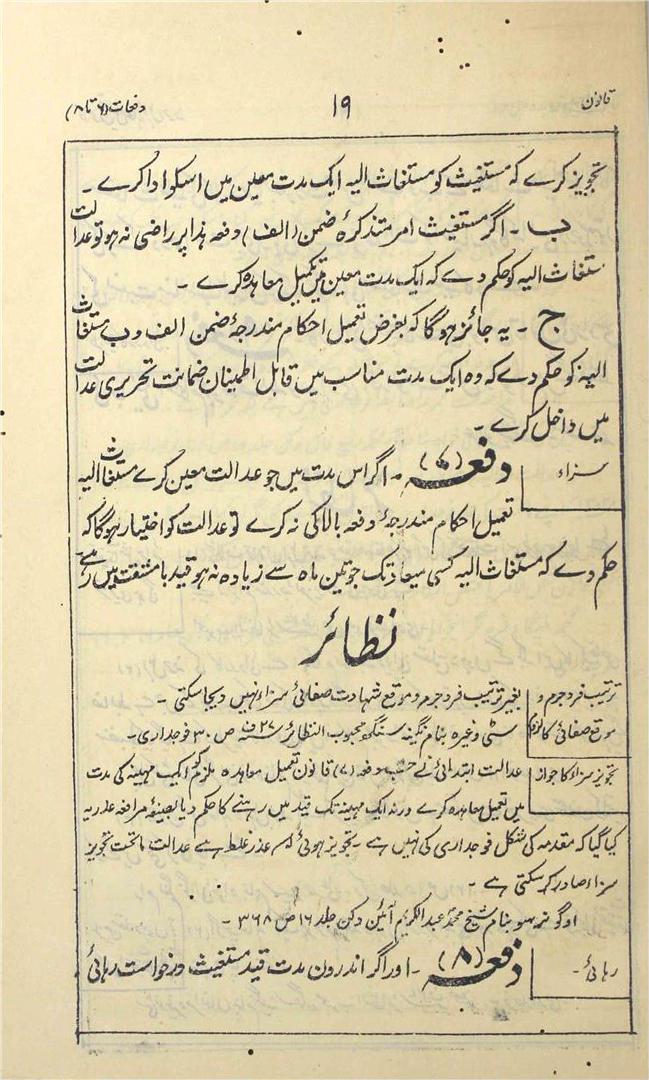 قانون
۱۹
دفعات (۶ تا ۸)
تجویز کرے کہ مستغیث کو مستغاث الیہ ایک مدت معین میں اسکو ادا کرے ۔
ب ۔ اگر مستغیث امر متذکرۂ ضمن (الف) دفعہ ہذا پر راضی نہ ہو تو عدالت
مستغاث الیہ کو حکم دے کہ ایک مدت معین میں تکمیل معاہدہ کرے ۔
ج ۔ یہ جائز ہوگا کہ بغرض تعمیل احکام مندرجۂ ضمن الف و ب مستغاث
الیہ کو حکم دے کہ وہ ایک مدت مناسب میں قابل اطمینان ضمانت تحریری عدالت
میں داخل کرے ۔
سزاء
دفعہ (۷) ۔ اگر اس مدت میں جو عدالت معین کرے مستغاث الیہ
تعمیل احکام مندرجۂ دفعہ بالا کی نہ کرے تو عدالت کو اختیار ہوگا کہ
حکم دے کہ مستغاث الیہ کسی میعاد تک جو تین ماہ سے زیادہ نہ ہو قید با مشقت میں رہے
نظائر
ترتیب فرد جرم و
موقع صفائی کا لزوم
بغیر ترتیب فرد جرم و موقع شہادت صفائی سزاء نہیں دیجا سکتی ۔
سٹی وغیرہ بنام نگینہ سنگھ محبوب النظائر ۲۷ ف ص ۳۰ فوجداری ۔
تجویز سزاء کا جواز
عدالت ابتدائی نے حسب دفعہ (۷) قانون تعمیل معاہدہ ملزم کو ایک مہینہ کی مدت
میں تعمیل معاہدہ کرے ورنہ ایک مہینہ تک قید میں رہنے کا حکم دیا بصیغۂ مرافعہ عذر یہ
کیا گیا کہ مقدمہ کی شکل فوجداری کی نہیں ہے ۔ تجویز ہوئی کہ عذر غلط ہے عدالت ماتحت تجویز
سزاء صادر کر سکتی ہے ۔
بنام شیخ محمد عبد الکریم آئین دکن جلد ۱۶ ص ۳۶۸ ۔
رہائی ۔
دفعہ (۸) ۔ اور اگر اندرون مدت قید مستغیث درخواست رہائی